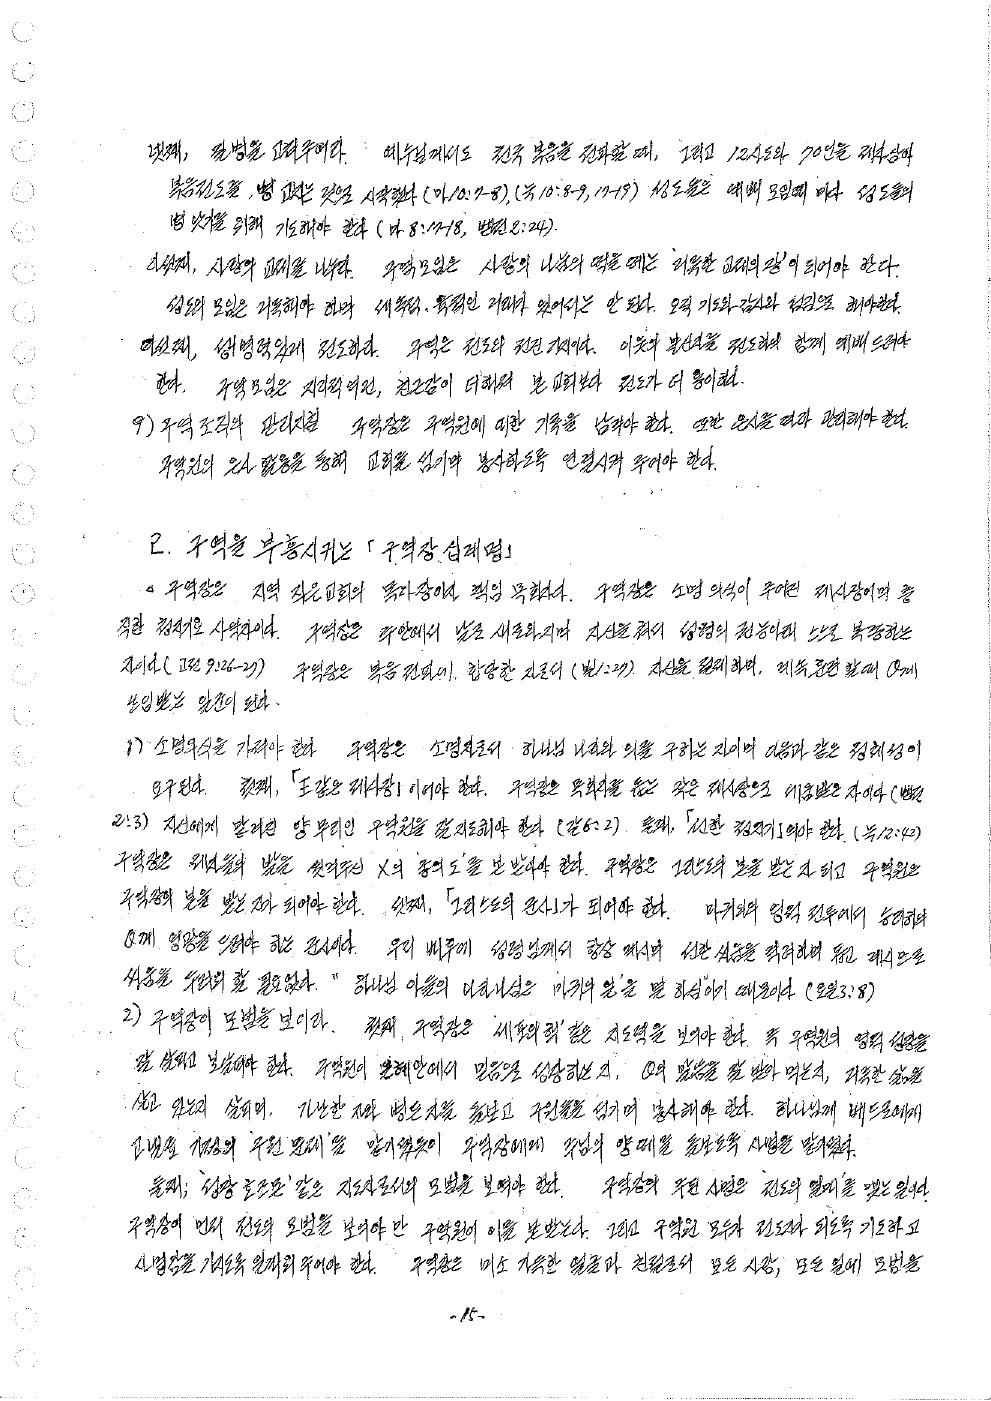 넷째, 질병을 고쳐주어라. 예수님께서도 천국 복음을 전파할 때, 그리고 12사도와 70인을 파송하여
복음전도를, 병 고치는 것으로 시작했다 (마10:7-8), (눅10:8-9, 17-19) 성도들은 예배 모임때 마다 성도들의
병 낫기를 위해 기도해야 한다 (마 8:17-18, 벧전2:24).
다섯째, 사랑의 교제를 나누라. 구역모임은 사랑의 나눔의 떡을 떼는 '거룩한 교제의 장'이 되어야 한다.
성도의 모임은 거룩해야 하며 세속적·육적인 거래가 있어서는 안 된다. 오직 기도와 감사와 섬김으로 해야한다.
여섯째, 생명력있게 전도하라. 구역은 전도의 전진기지이다. 이웃의 불신자를 전도하여 함께 예배 드려야
한다. 구역모임은 지리적여건, 친근감이 더해져 본 교회보다 전도가 더 용이하다.
9) 구역 조직의 관리지침 구역장은 구역원에 대한 기록을 남겨야 한다. 또한 은사를 따라 관리해야 한다.
구역원의 은사 활용을 통해 교회를 섬기며 봉사하도록 연결시켜 주어야 한다.
2. 구역을 부흥시키는 「구역장 십계명」
구역장은 지역 작은교회의 목자장이신 책임 목회자다. 구역장은 소명 의식이 주어진 제사장이며 충
직한 청지기요 사역자이다. 구역장은 주안에서 날로 새로와지며 자신을 쳐서 성령의 권능아래 스스로 복종하는
자이다 (고전 9:26-27) 구역장은 복음전파에 합당한 자로서 (빌1:27) 자신을 절제하며, 계속 훈련 할때 O께
쓰임받는 일꾼이 된다.
1) 소명의식을 가져야 한다 구역장은 소명자로서 하나님 나라와 의를 구하는 자이며 다음과 같은 정체성이
요구된다. 첫째, 「王같은 제사장」이어야 한다. 구역장은 목회자를 돕는 작은 제사장으로 세움받은 자이다 (벧전
2:3) 자신에게 맡겨진 양 무리인 구역원을 잘 지도해야 한다 (갈6:2). 둘째, 「선한 청지기」여야 한다. (눅12:42)
구역장은 제자들의 발을 씻겨주신 X의 '종의 도'를 본 받아야 한다. 구역장은 그리스도의 본을 받는 자 되고 구역원은
구역장의 본을 받는 자가 되어야 한다. 셋째, 「그리스도의 군사」가 되어야 한다. 마귀와의 영적 전투에서 승리하여
O께 영광을 드려야 하는 군사이다. 우리 배후에 성령님께서 항상 계시며 선한 싸움을 격려하며 돕고 계시므로
싸움을 두려워 할 필요없다. "하나님 아들의 나타나심은 '마귀의 일'을 멸 하심"이기 때문이다 (요일3:8)
2) 구역장이 모범을 보이라. 첫째, 구역장은 '세포의 핵' 같은 지도력을 보여야 한다. 즉 구역원의 영적 성장을
잘 살피고 보살펴야 한다. 구역원이 은혜안에서 믿음으로 성장하는 지, O의 말씀을 잘 받아 먹는지, 거룩한 삶을
살고 있는지 살피며, 가난한 자와 병든자를 돌보고 구원들을 섬기며 봉사해야 한다. 하나님께 베드로에게
고넬료 가정의 '구원 문제'를 맡기셨듯이 구역장에게 주님의 양 떼를 돌보도록 사명을 맡겨졌다.
둘째, '성장 호르몬' 같은 지도자로서의 모범을 보여야 한다. 구역장의 주된 사명은 전도의 열매를 맺는 일이다.
구역장이 먼저 전도의 모범을 보여야 만 구역원이 이를 본받는다. 그리고 구역원 모두가 전도자가 되도록 기도하고
사명감을 가지도록 일깨워 주어야 한다. 구역장은 미소 가득한 얼굴과 친절로서 모든 사람, 모든 일에 모범을
-15-